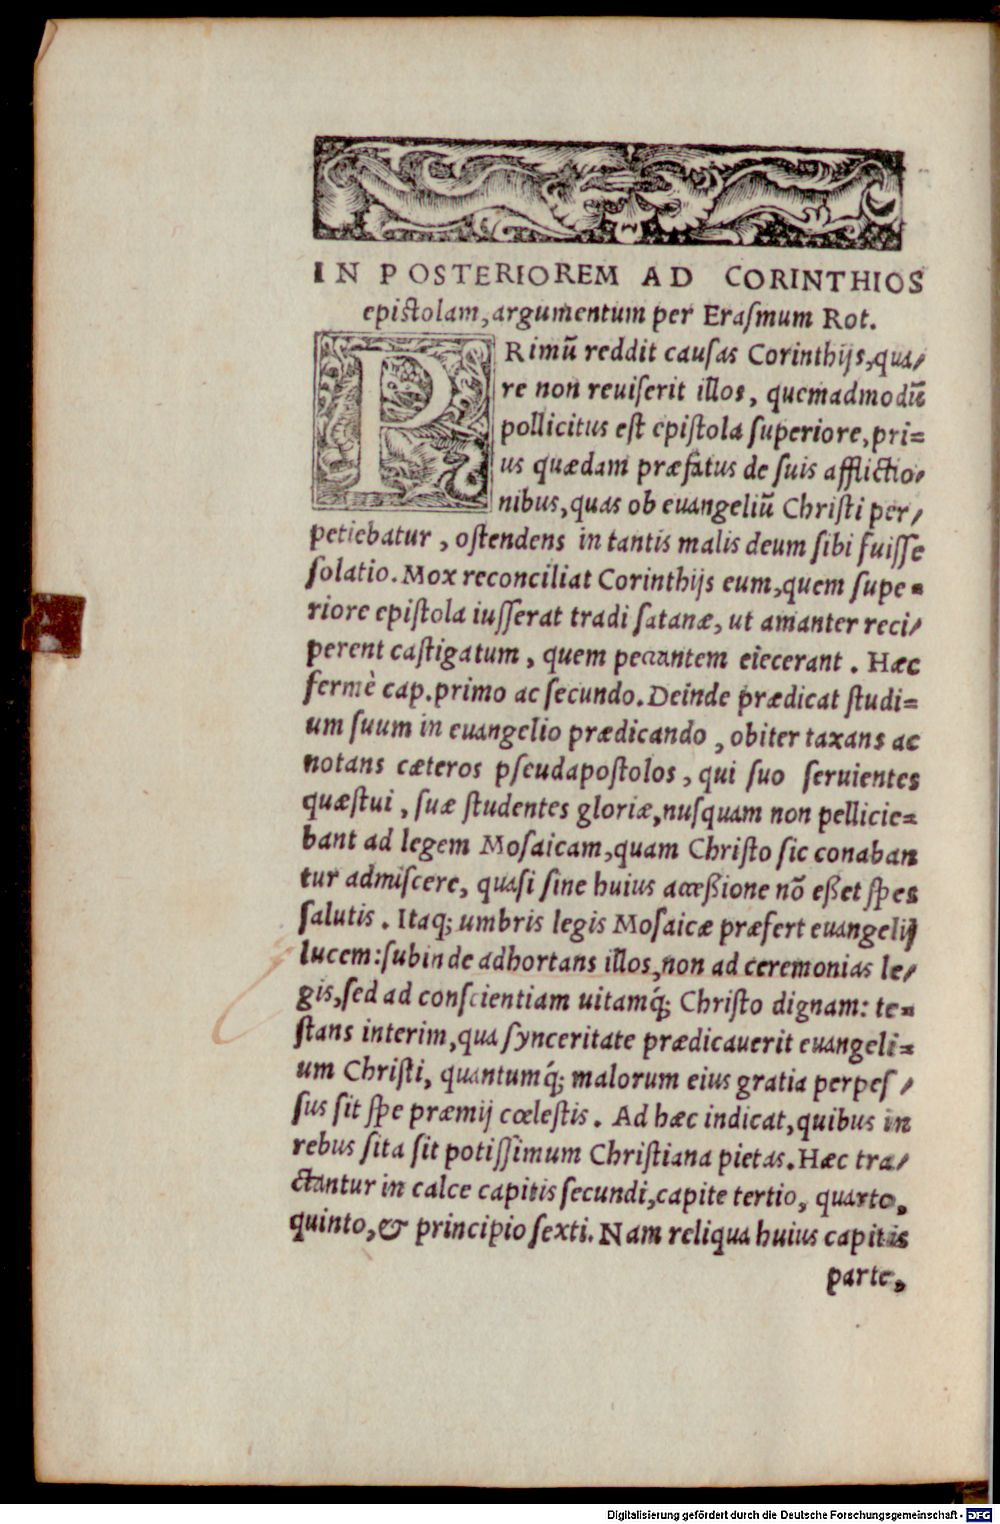 IN POSTERIOREM AD CORINTHIOS
epistolam, argumentum per Erasmum Rot.
PRimū reddit causas Corinthijs, qua/
re non reuiserit illos, quemadmodū
pollicitus est epistola superiore, pri=
us quædam præfatus de suis afflictio/
nibus, quas ob euangeliū Christi per/
petiebatur, ostendens in tantis malis deum sibi fuisse
solatio. Mox reconciliat Corinthijs eum, quem supe=
riore epistola iusserat tradi satanæ, ut amanter reci/
perent castigatum, quem peccantem eiecerant. Hæc
fermè cap. primo ac secundo. Deinde prædicat studi=
um suum in euangelio prædicando, obiter taxans ac
notans cæteros pseudapostolos, qui suo seruientes
quæstui, suæ studentes gloriæ, nusquam non pellicie=
bant ad legem Mosaicam, quam Christo sic conaban
tur admiscere, quasi sine huius acceßione nō eßet spes
salutis. Itaq; umbris legis Mosaicæ præfert euangelij
lucem: subinde adhortans illos, non ad ceremonias le/
gis, sed ad conscientiam uitamq́; Christo dignam: te=
stans interim, qua synceritate prædicauerit euangeli=
um Christi, quantumq́; malorum eius gratia perpes/
sus sit spe præmij cœlestis. Ad hæc indicat, quibus in
rebus sita sit potissimum Christiana pietas. Hæc tra/
ctantur in calce capitis secundi, capite tertio, quarto,
quinto, & principio sexti. Nam reliqua huius capitis
parte,
Digitalisierung gefördert durch die Deutsche Forschungsgemeinschaft - DFG